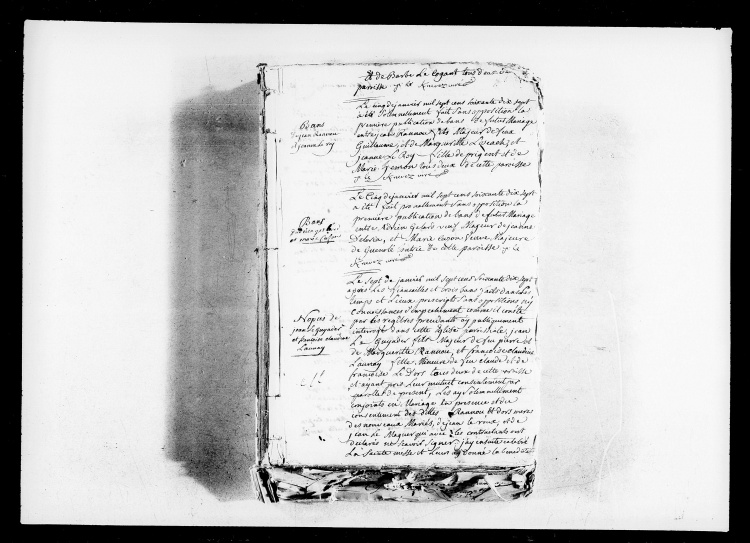 et de Barbe Le cogant tous deux de
paroisse
Le cinq de janvier mil sept cent soixante dix sept
a été solemnellement fait sans opposition la
première publication de bans de futur Mariage
entre jean Rannou fils Majeur de feux
Guillaume, et de Margueritte et
jeanne Le Roy fille de prigent et de
Marie tous deux de cette paroisse
Bans
de jean Rannou
et jeanne Le roy
Le Cinq de janvier mil sept cent soixante dix sept
a été fait pronallement sans opposition la
première publication de bans de futur Mariage
entre Adrien veuf Majeur de jeanne
et Marie cuzon veuve Majeure
de Guenolé de cette paroisse
Bans
et marie cuzon
Le sept de janvier mil sept cent soixante dix sept
apres Les fiançailles et trois bans faits dans Les
temps et Lieux prescripts sans oppositions ny
connoissances d'empechement comme il conste
par les registres precedente ay publiquement
interrogé dans cette Eglise paroissiale, jean
Le Guyader fils Majeur de feu pierre et
de Margueritte Rannou, et françoise claudine
Launay fille Mineure de feu claude et de
françoise Le Dors tous deux de cette paroisse
et ayant pris Leur mutuel consentement par
parolles de present, Les ay solemnellement
conjoints en Mariage en presence et du
consentement des dittes Rannou et dors meres
des nouveaux Mariés, de jean Le roux, et de
jean Le Maguer qui avec Les contractants ont
declarés ne sçavoir signer, j'ay ensuite celebré
La Sainte messe et Leurs ay donné la benediction
Nopces de
jean Le guyader
et françoise claudine
Launay